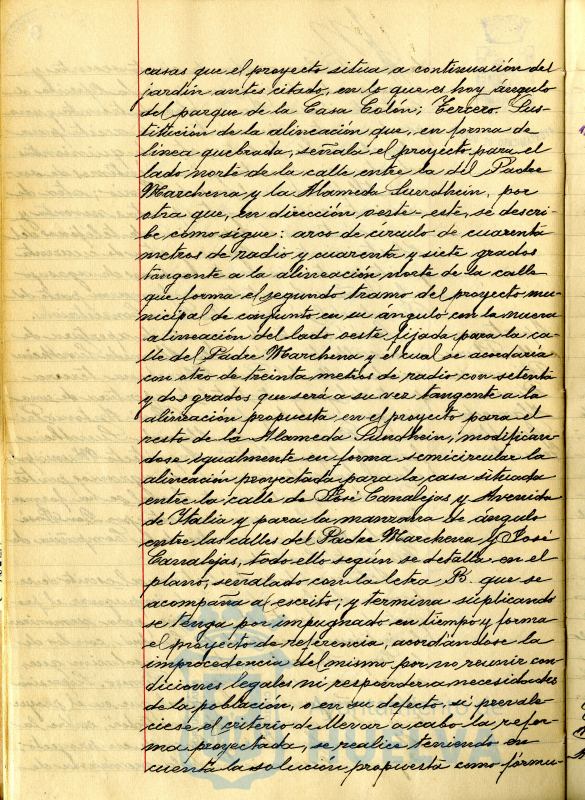 casas que el proyecto situa a continuación del
jardín antes citado, en lo que es hoy ángulo
del parque de la Casa Colón; Tercero. Sus-
titución de la alineación que, en forma de
linea quebrada, señala el proyecto para el
lado norte de la calle entre la del Padre
Marchena y la Alameda Sundhein, por
otra que, en dirección oeste-este, se descri-
be como sigue: arco de circulo de cuarenta
metros de radio y cuarenta y siete grados
tangente a la alineación norte de la calle
que forma el segundo tramo del proyecto mu-
nicipal de conjunto en su ángulo con la nueva
alineación del lado oeste fijada para la ca-
lle del Padre Marchena y el cual se acordaria
con otro de treinta metros de radio con setenta
y dos grados que será a su vez tangente a la
alineación propuesta en el proyecto para el
resto de la Alameda Sundhein, modificán-
dose igualmente en forma semicircular la
alineación proyectada para la casa situada
entre la calle de José Canalejas y Avenida
de Italia y para la manzana de ángulo
entre las calles del Padre Marchena y José
Canalejas, todo ello según se detalla en el
plano, señalado con la letra B. que se
acompaña al escrito; y termina suplicando
se tenga por impugnado en tiempo y forma
el proyecto de referencia, acordándose la
improcedencia del mismo por no reunir con-
diciones legales ni responder a necesidades
de la población, o en su defecto, si prevale-
ciese el criterio de llevar a cabo la refor-
ma proyectada, se realice teniendo en
cuenta la solución propuesta como fórmu-
HUELVA